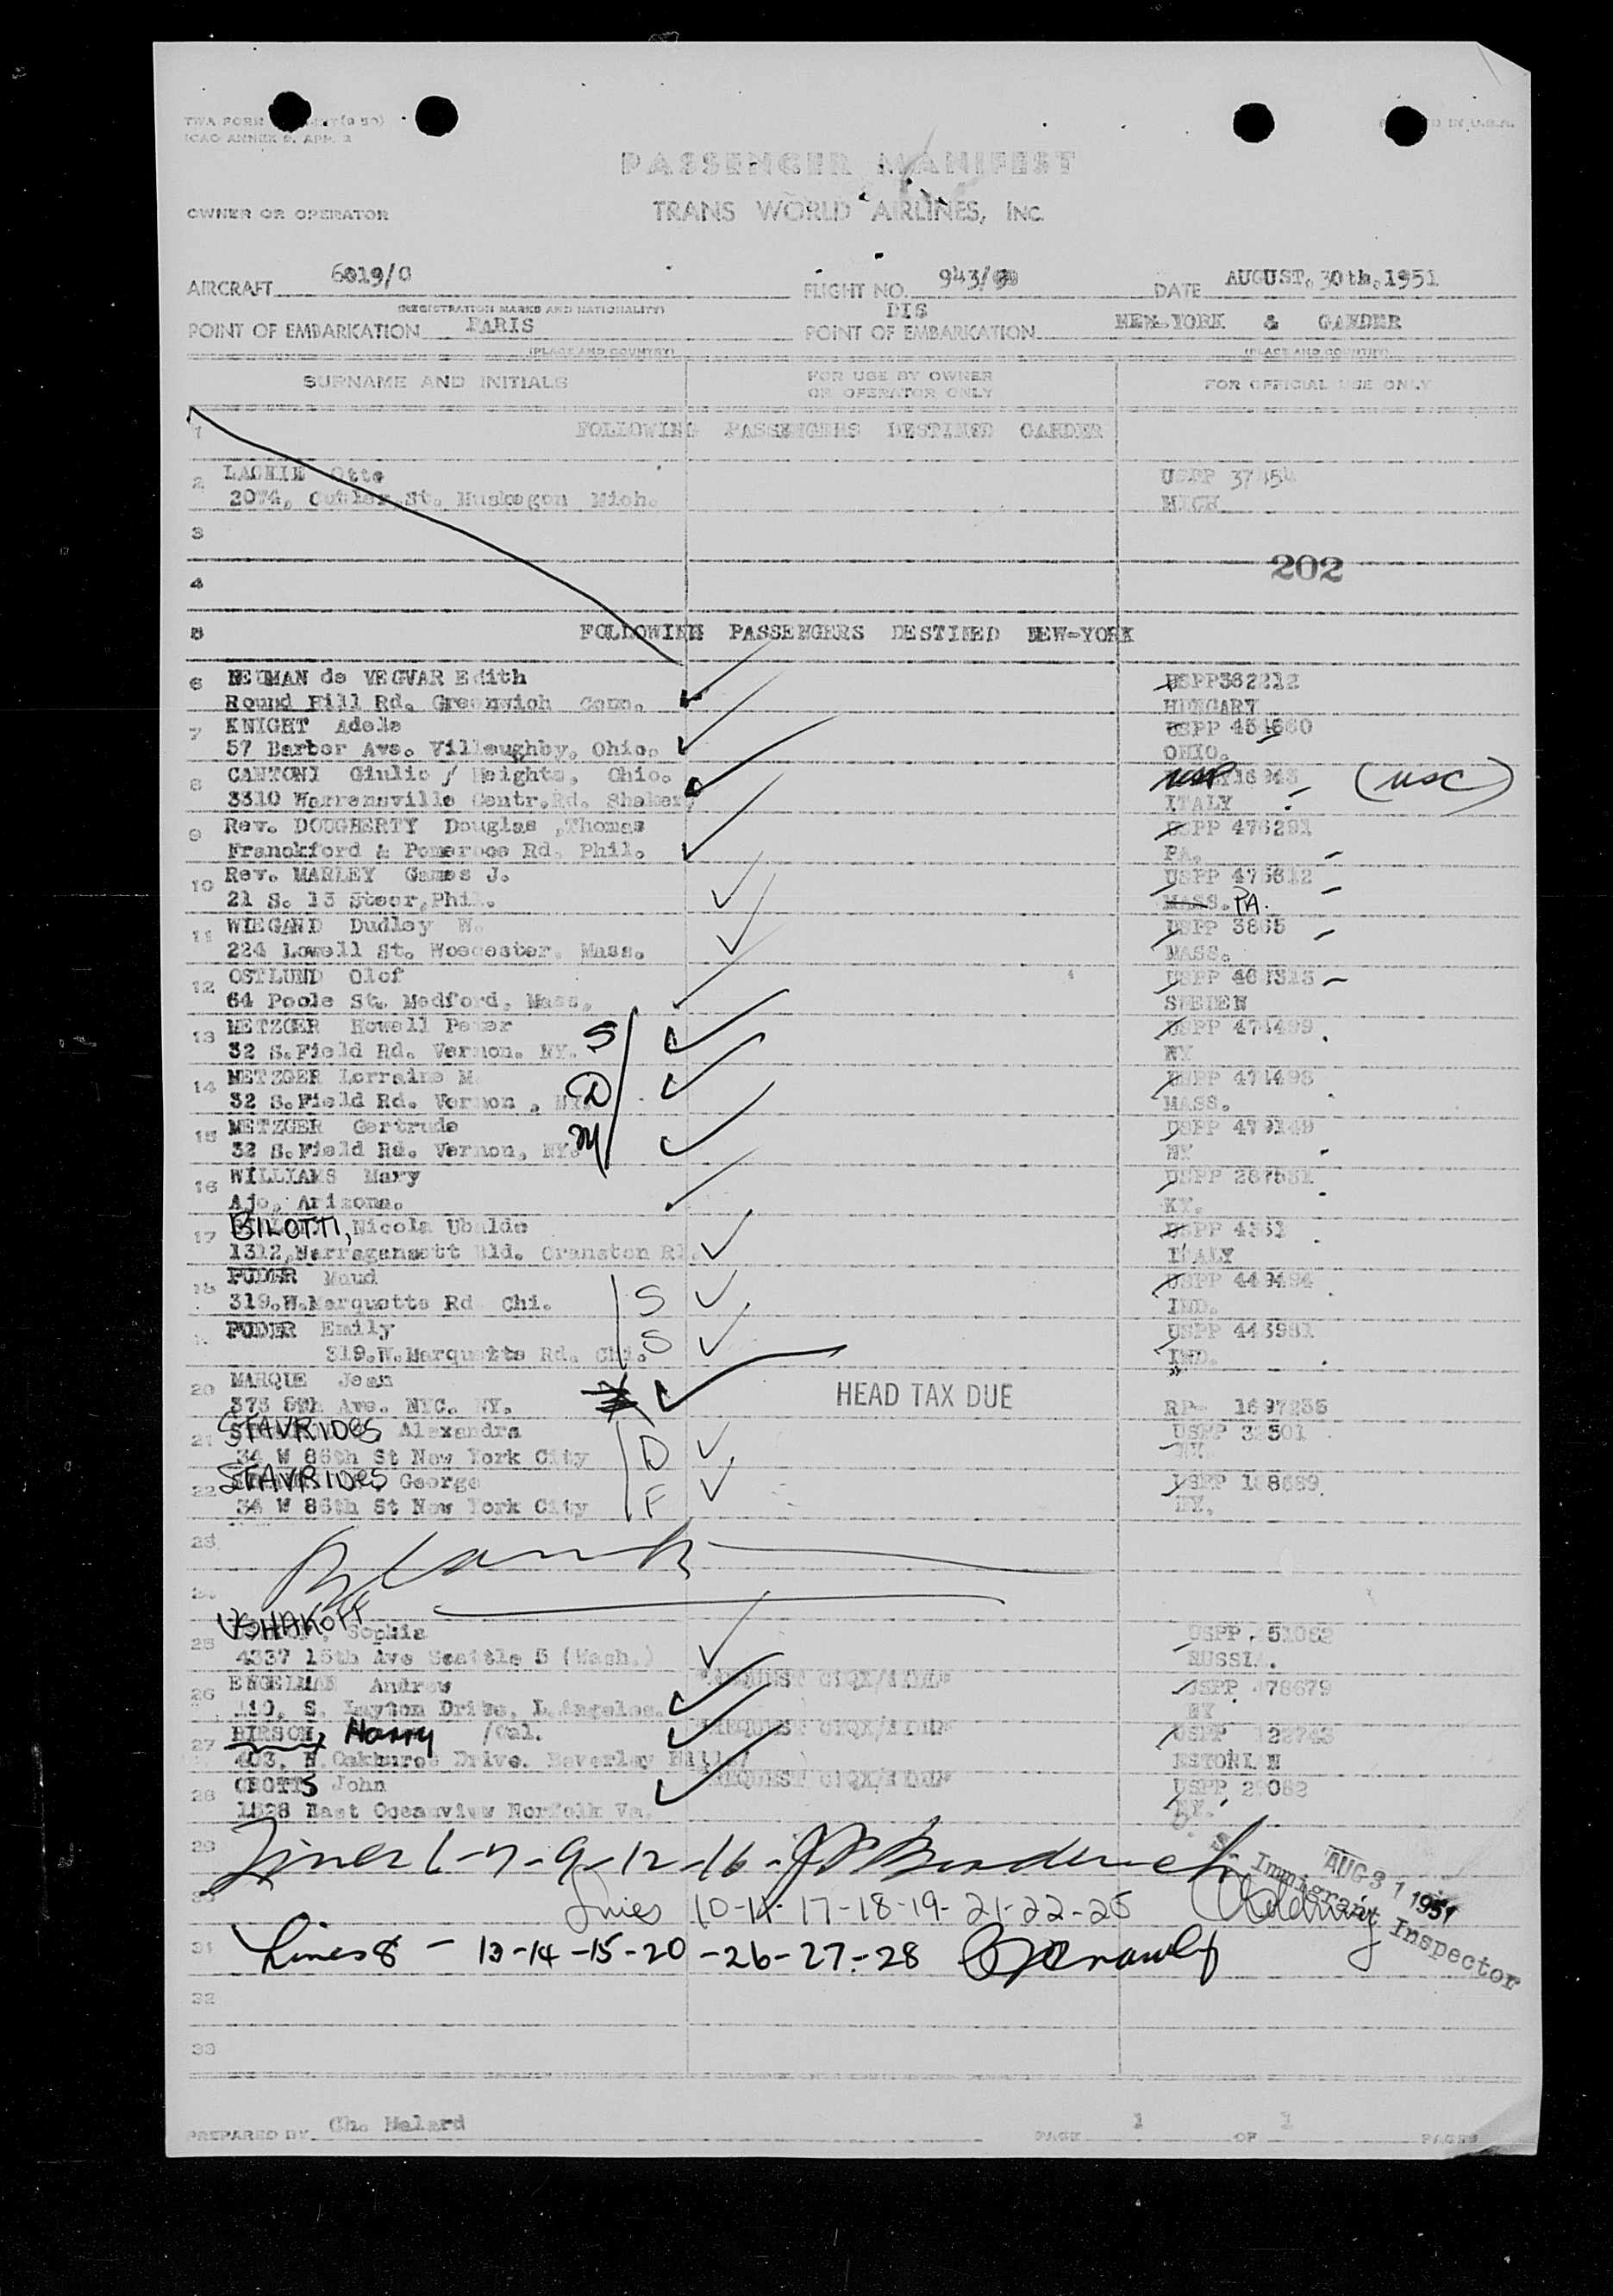 ICAO ANNEX 9, APP. 2
PASSENGER MANIFEST
OWNER OR OPERATOR TRANS WORLD AIRLINES, INC.
AIRCRAFT 6019/C FLIGHT NO. 943/ DATE AUGUST, 30th, 1951
(REGISTRATION MARKS AND NATIONALITY) DIS
POINT OF EMBARKATION PARIS POINT OF EMBARKATION NEW-YORK & GANDER
(PLACE AND COUNTRY) (PLACE AND COUNTRY)
SURNAME AND INITIALS FOR USE BY OWNER OR OPERATOR ONLY FOR OFFICIAL USE ONLY
1 FOLLOWING PASSENGERS DESTINED GANDER
2 Otto USPP
St. Muskegon Mich. MICH
3
202
4
5 FOLLOWINH PASSENGERS DESTINED NEW-YORK
6 NEUMAN de VEGVAR Edith USPP362212
Round Hill Rd. Greenwich Conn. HUNGARY
7 KNIGHT Adele USPP
57 Barber Ave. Villaughby, Ohio. OHIO.
8 CANTONI Giulio / Heights, Ohio. (USC)
3310 Warrensville Centr.Rd. Shaker, ITALY
9 Rev. DOUGHERTY Douglas ,Thomas USPP 476291
Franckford & Rd. Phil. PA.
10 Rev. MARLEY James J. USPP 475612
21 S. 13 Steer,Phil. MASS. PA.
11 WIEGAND Dudley W. USPP 3865
224 Lowell St. Woscester. Mass. MASS.
12 OSTLUND Olof USPP
64 Poole St. Medford, Mass. SWEDEN
13 METZGER Howell Peter S USPP 474499
32 S.Field Rd. Vernon. NY. NY
14 METZGER Lorraine M. D USPP 474498
32 S.Field Rd. Vernon , NY. MASS.
15 METZGER Gertrude M USPP 479149
32 S.Field Rd. Vernon, NY. NY
16 WILLIAMS Mary USPP 287531
Ajo, Arizona. KY.
17 BILOTTI, Nicola Ubaldo USPP 4361
1312,Narragansett Bld. Cranston RI. ITALY
18 PUDER Maud S USPP 449494
319.W.Marquette Rd Chi. IND.
PUDER Emily S USPP 443981
319.W.Marquette Rd. Chi. IND.
20 MARQUE Jean HEAD TAX DUE
375 5th Ave. NYC. NY. RP- 1697255
21 STAVRIDES Alexandra D USPP
34 W 86th St New York City NY.
22 STAVRIDES George F USPP
34 W 86th St New York City NY.
23 Blank
24
25 USHAKOFF, Sophie USPP 51062
4337 15th Ave Seattle 5 (Wash.) RUSSIA.
26 ENGELMAN Andrew USPP 478679
S. Layton Drive, L.Angeles. NY
27 HIRSON, Harry /Cal. USPP
403, N.Oakhurst Drive. Beverley Hills/
28 CROTTS John USPP
1528 East Oceanview Norfolk Va. NY.
29 Lines 1-7-9-12-16-
U. S. Immigrant Inspector AUG 31 1951
30 Lines 10-11-17-18-19-21-22-25
31 Lines 8 - 13-14-15-20-26-27-28
32
33
PREPARED BY Ch. Helard PAGE 1 OF 1 PAGES